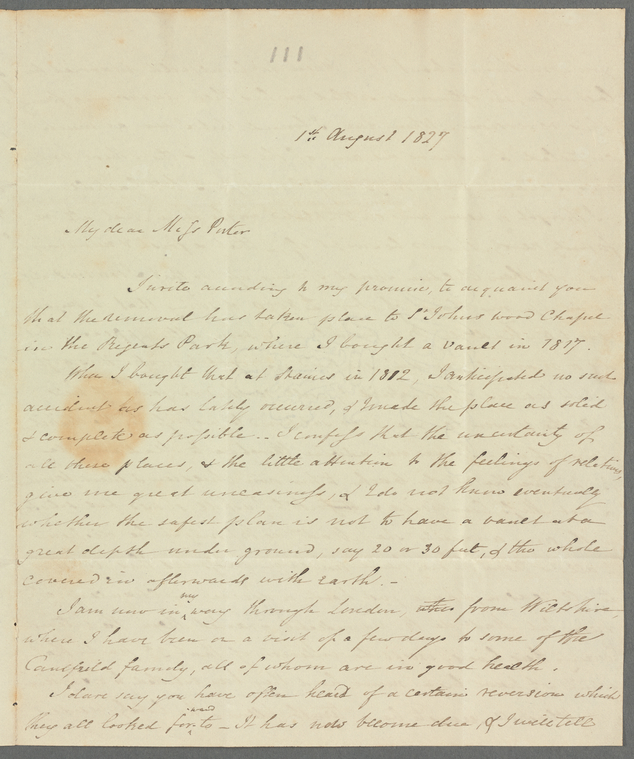 111
1st August 1827
My dear Miss Porter
I write according to my promise, to acquaint you
that the removal has taken place to St Johns wood Chapel
in the Regents Park, where I bought a vault in 1817.
When I bought that at Staines in 1812, I anticipated no such
accident as has lately occurred, & I made the place as solid
& complete as possible.. I confess that the uncertainty of
all these places, & the little attention to the feelings of relations,
give me great uneasiness, & I do not know eventually
whether the safest plan is not to have a vault at a
great depth under ground, say 20 or 30 feet, & the whole
covered in afterwards with earth. –
I am now in my way through London, from Wiltshire,
where I have been on a visit of a few days to some of the
Caulfield family, all of whom are in good health.
I dare say you have often heard of a certain reversion which
they all looked forward to – It has now become due, & I will tell